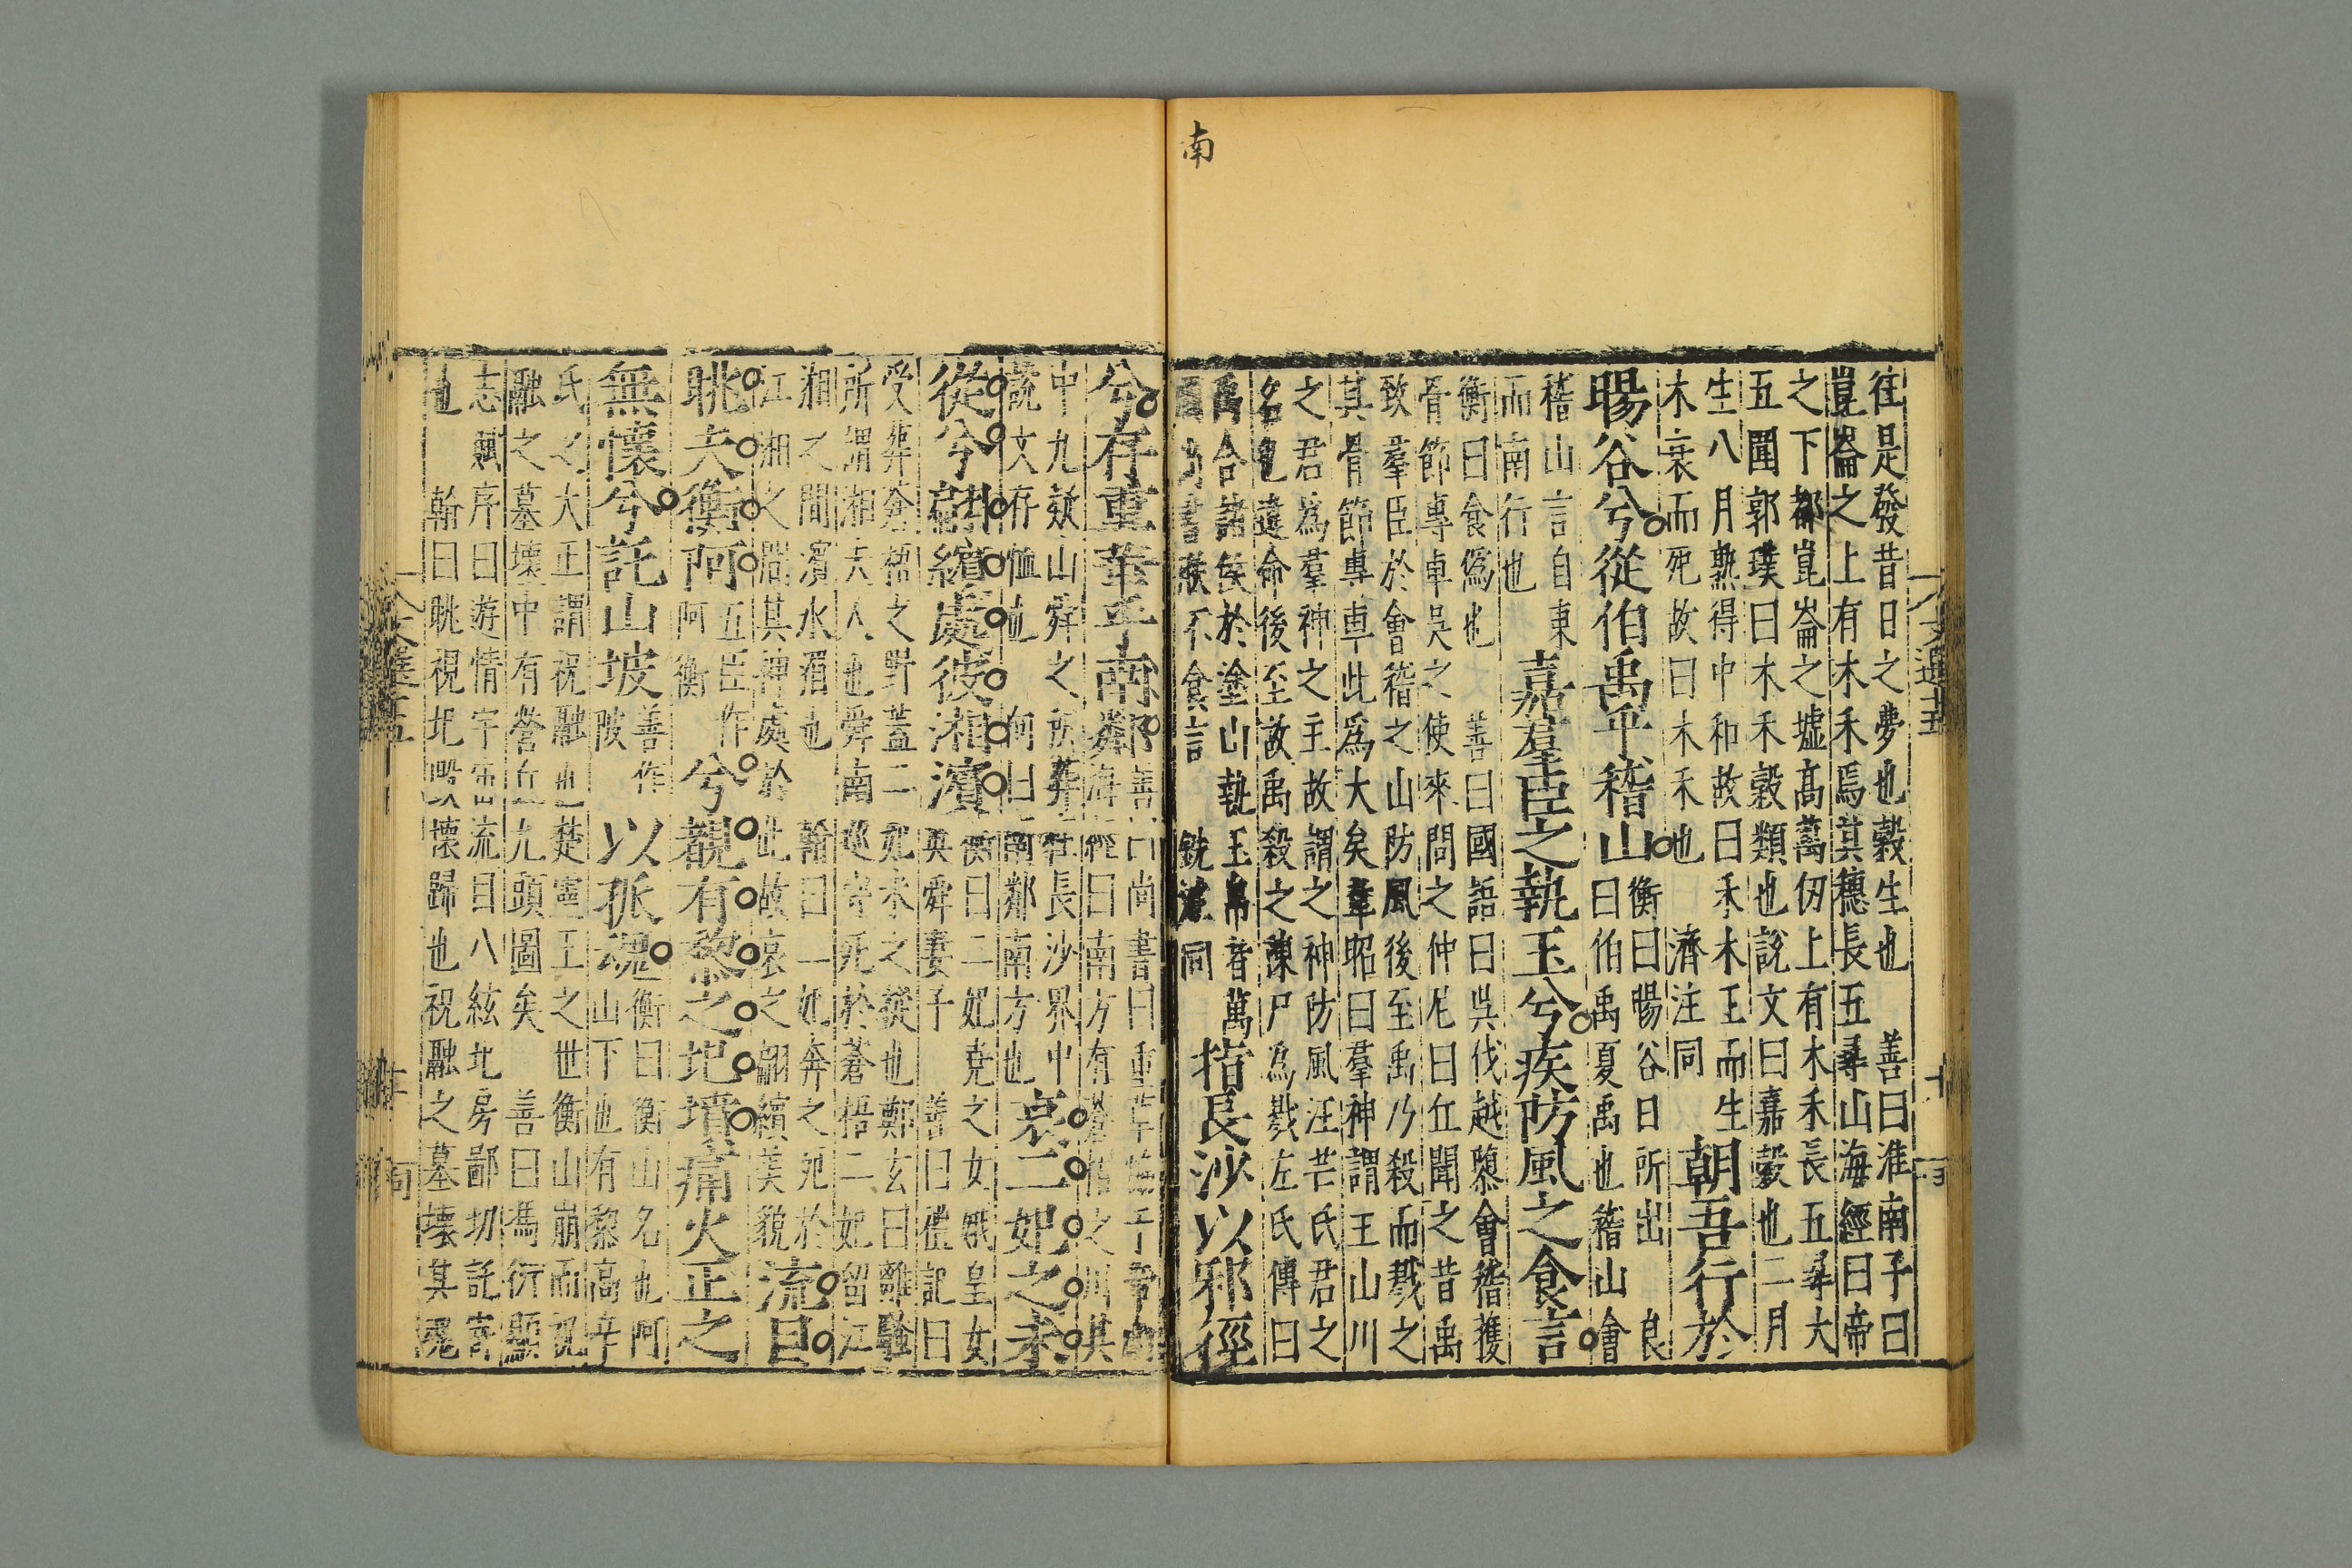 南
往是發昔日之夢也穀生也　善曰淮南子曰
崑崙之上有木禾焉其穗長五尋山海經曰帝
之下都崑崙之墟高萬仞上有木禾長五尋大
五圍郭璞曰木禾穀類也說文曰嘉穀也二月
生八月熟得中和故曰禾木王而生
木衰而死故曰木禾也　濟注同
朝吾行於
暘谷兮從伯禹乎稽山
衡曰暘谷日所出　良
曰伯禹夏禹也稽山會
稽山言自東
而南行也
嘉羣臣之執玉兮疾防風之食言
衡曰食偽也　善曰國語曰吳伐越隳會稽獲
骨節專車吳之使來問之仲尼曰丘聞之昔禹
致羣臣於會稽之山防風後至禹乃殺而戮之
其骨節專車此爲大矣韋昭曰羣神謂王山川
之君爲羣神之主故謂之神防風汪芒氏君之
名也違命後至故禹殺之陳尸爲戮左氏傳曰
禹合諸侯於塗山執玉帛者萬
國尚書朕不食言　銑注同
指長沙以邪徑
兮存重華乎南鄰
中九疑山舜之所葬在長沙界中
說文存恤也　向曰南鄰南方也
哀二妃之未
從兮翩繽處彼湘濱
衡曰二妃堯之女娥皇女
英舜妻子　善曰禮記曰
受葬蒼梧之野蓋二妃未之從也鄭玄曰離騷
所謂湘夫人也舜南巡守死於蒼梧二妃留江
湘之間濱水湄也　翰曰二妃奔之死於
江湘之間其神處於此故哀之翩繽美貌
流目
眺夫衡阿
五臣作
阿衡
兮覩有黎之圮墳痛火正之
無懷兮託山坡
善作
陂
以孤魂
衡曰衡山名也阿
山下也有黎高辛
氏之火正謂祝融也楚靈王之世衡山崩而祝
融之墓壞中有營丘九頭圖矣　善曰馮衍顯
志賦序曰遊情宇宙流目八紘圮房鄙切託寄
也　翰曰眺視圮毀壞歸也祝融之墓壞其魂